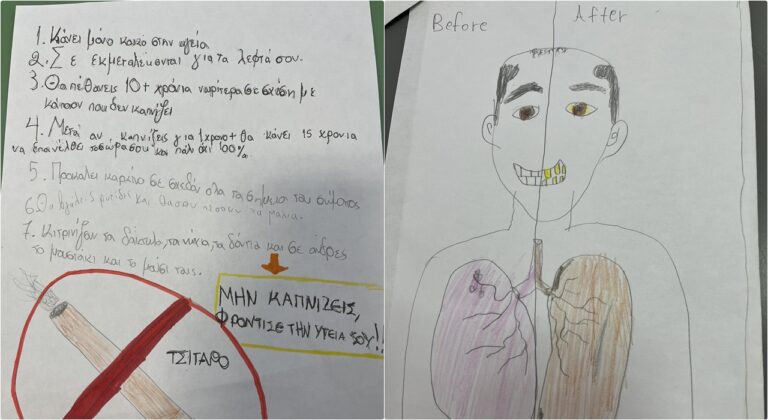 1. Κάνει μόνο κακό στην υγεία
2. Σε εκμεταλεύονται για τα λεφτά σου.
3. Θα πέθανεις 10+ χρόνια νωρίτερα σε σχέση με
κάποιον που δεν καπνίζει
4. Μετά αν καπνίζεις για 1 χρόνο+ θα κάνει 15 χρόνια
να επανέλθει το σώμα σου και πάλι όχι 100%.
5. Προκαλεί καρκίνο σε σχεδόν όλα τα σημεία του σώματος
6. Θα βγάλεις ρυτίδες και θα σου πέσουν τα μαλλιά.
7. Κιτρινίζουν τα δάχτυλα, τα νύχια, τα δόντια και σε άνδρες
το μουστάκι και το μούσι τους.
ΜΗΝ ΚΑΠΝΙΖΕΙΣ,
ΦΡΟΝΤΙΣΕ ΤΗΝ ΥΓΕΙΑ ΣΟΥ!!
ΤΣΙΓΑΡΟ
Before After